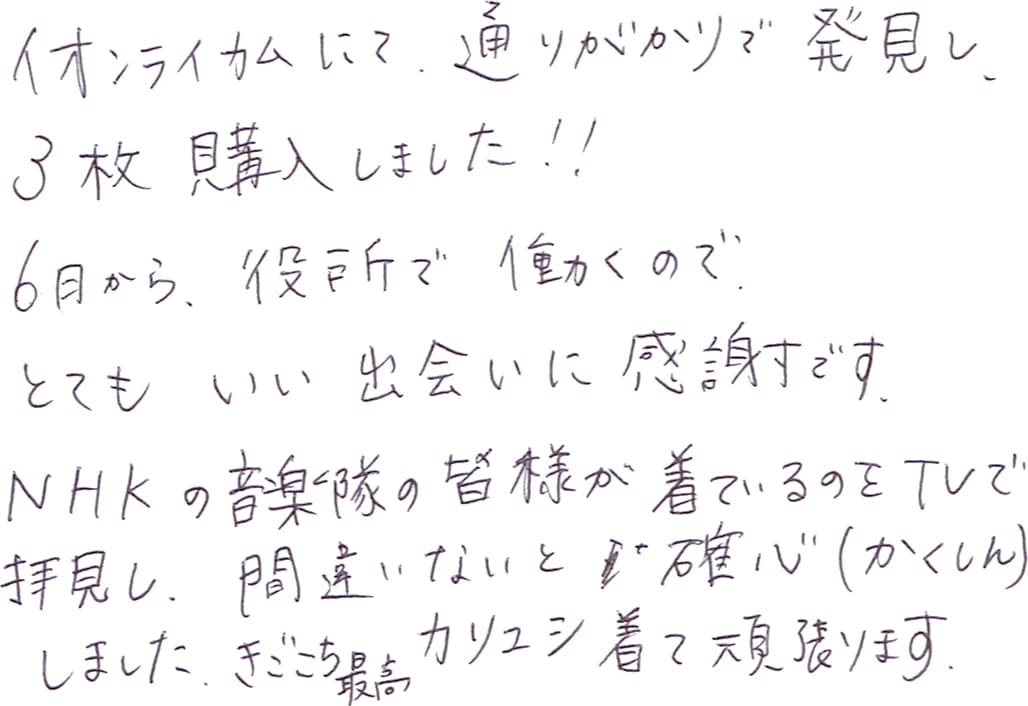 イオンライカムにて、通りがかりで発見し、
3枚購入しました!!
6月から、役所で働くので、
とてもいい出会いに感謝すです。
NHKの音楽隊の皆様が着ているのをTVで
拝見し、間違いないと確心(かくしん)
しました。きごこち最高カリユシ着て頑張ります。